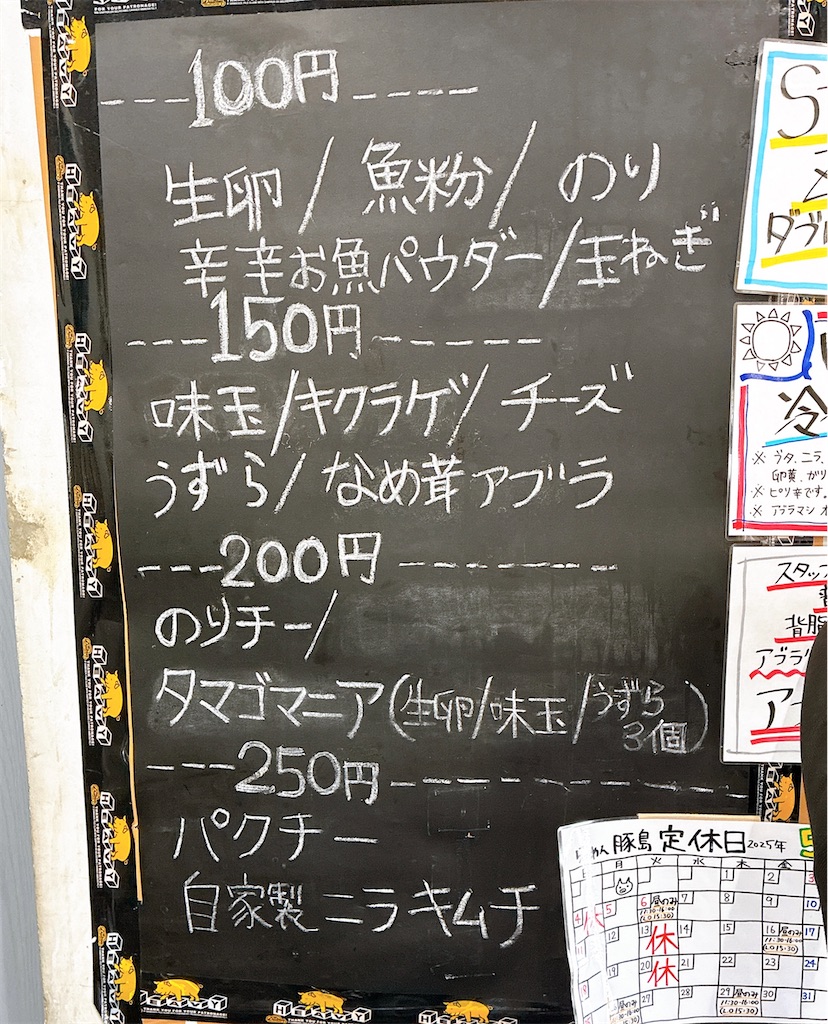 ---100円----
生卵/魚粉/のり
辛辛お魚パウダー/玉ねぎ
---150円-----
味玉/キクラゲ/チーズ
うずら/なめ茸アブラ
---200円------
のりチー/
タマゴマニア(生卵/味玉/うずら
3個)
---250円-------
パクチー
自家製ニラキムチ
ダブル
冷
※ブタ、ニラ、
卵黄、ガリ
※ピリ辛です。
※アブラマシ
スタッフ
背脂
アブラ
豚島 定休日 2025年
月 火 水 木 金
1 2 3
5 6 昼のみ 7 8 9 10
11:30-16:00
(LO 15:30)
12 13 14 15 16 昼のみ 17
休 11:30-16:00
(LO 15:30)
19 20 21 22 23 24
休
昼のみ 27 28 29 昼のみ 30 31
11:30-16:00
(LO 15:30)
HEAVY
THANK YOU FOR YOUR PATRONAGE!